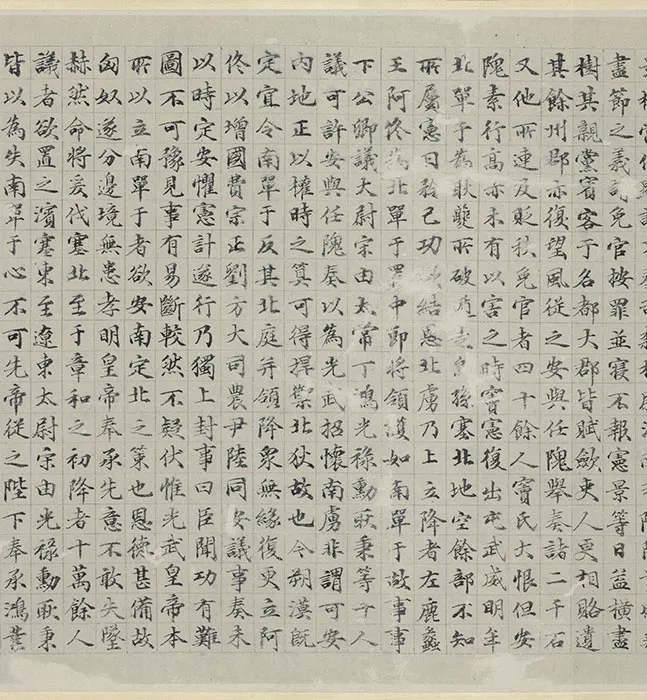 盡節之義請免官按罪並寢不報憲景等日益橫盡
樹其親黨賓客于名都大郡皆賦斂吏人更相賂遺
其餘州郡亦復望風從之安與任隗舉奏諸二千石
又他所連及貶秩免官者四十餘人竇氏大恨但安
隗素行高亦未有以害之時竇憲復出屯武威明年
北單于為耿夔所破遁走烏孫塞北地空餘部不知
所屬憲日矜己功欲結恩北虜乃上立降者左鹿蠡
王阿佟為北單于置中郎將領護如南單于故事事
下公卿議大尉宗由太常丁鴻光祿勳耿秉等十人
議可許安與任隗奏以為光武招懷南虜非謂可安
內地正以權時之算可得捍禦北狄故也今朔漠既
定宜令南單于反其北庭并領降眾無緣復更立阿
佟以增國費宗正劉方大司農尹陸同安議事奏未
以時定安懼憲計遂行乃獨上封事曰臣聞功有難
圖不可豫見事有易斷較然不疑伏惟光武皇帝本
所以立南單于者欲安南定北之策也恩德甚備故
匈奴遂分邊境無患孝明皇帝奉承先意不敢失墜
赫然命將爰伐塞北至于章和之初降者十萬餘人
議者欲置之濱塞東至遼東太尉宗由光祿勳耿秉
皆以為失南單于心不可先帝從之陛下奉承鴻業